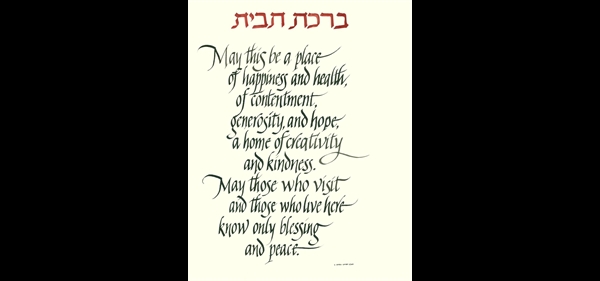 ברכת הבית
May this be a place
of happiness and health,
of contentment,
generosity, and hope,
a home of creativity
and kindness.
May those who visit
and those who live here
know only blessing
and peace.